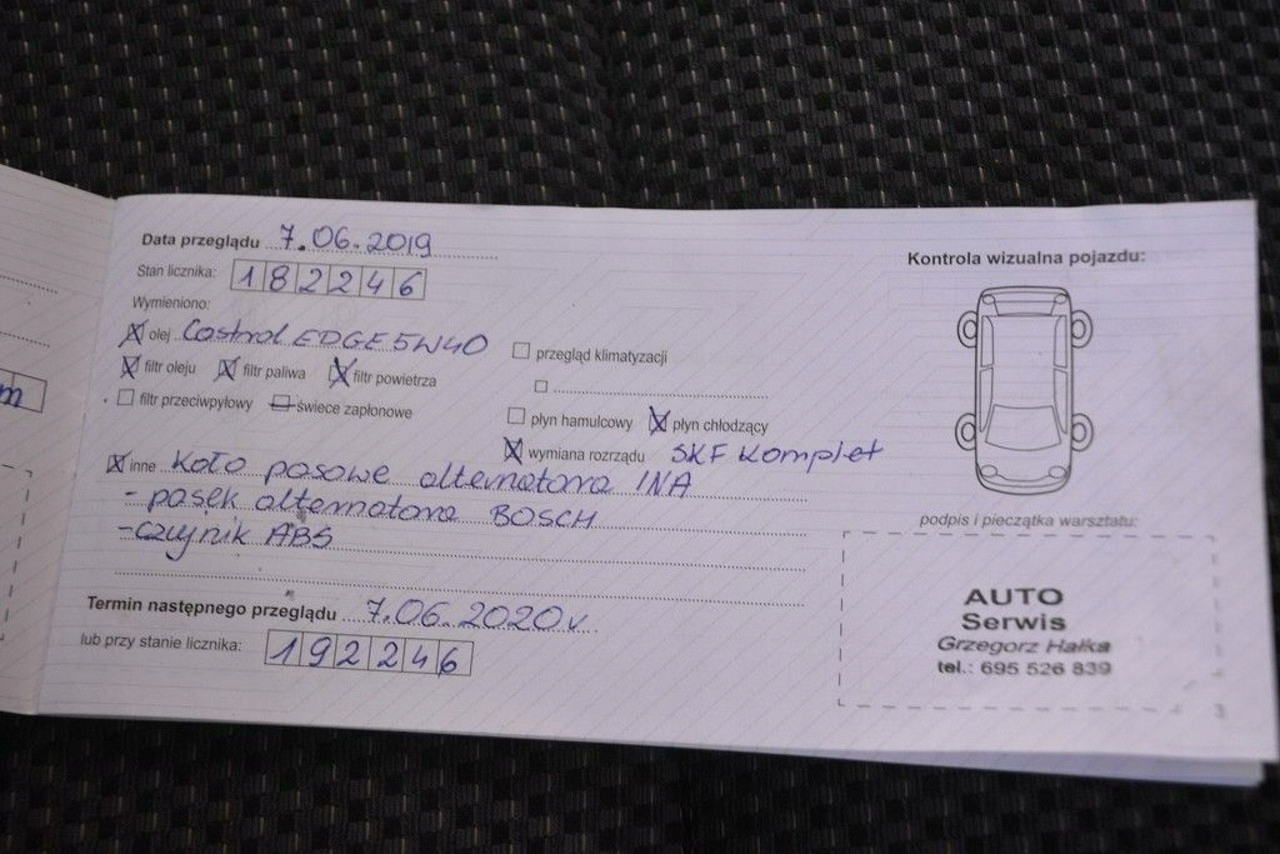 Data przeglądu 7.06.2019
Stan licznika: 182246
Wymieniono:
olej Castrol EDGE 5W40
filtr oleju filtr paliwa filtr powietrza
filtr przeciwpyłowy świece zapłonowe
przegląd klimatyzacji
płyn hamulcowy płyn chłodzący
wymiana rozrządu SKF Komplet
inne Koło pasowe alternatora INA
- pasek alternatora BOSCH
- czujnik ABS
Termin następnego przeglądu 7.06.2020r.
lub przy stanie licznika: 192246
Kontrola wizualna pojazdu:
podpis i pieczątka warsztatu:
AUTO
Serwis
Grzegorz Hałka
tel.: 695 526 839
3
m